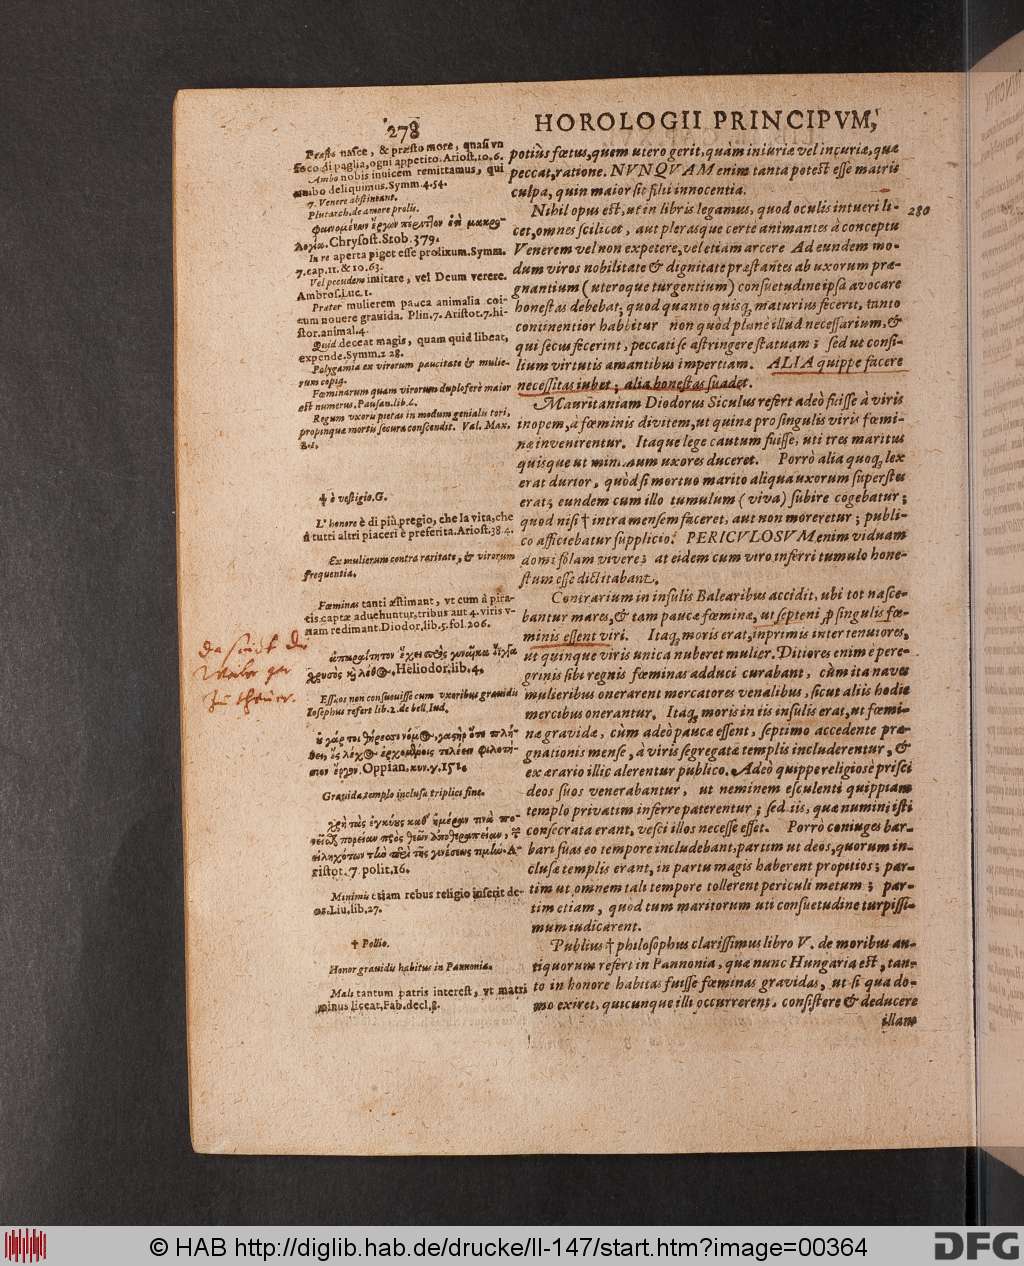 278
HOROLOGII PRINCIPVM,
Præsto nasce, & præsto more, quasi vn
foco di paglia, ogni appetito. Ariost. 10. 6.
Ambo nobis inuicem remittamus, qui
ambo deliquimus. Symm. 4. 54.
7. Venere abstineant.
Plutarch. de amore prolis.
λογία. Chrysost. Stob. 379.
In re aperta piget esse prolixum. Symm.
7. cap. 11. & 10. 63.
Vel pecudem imitare, vel Deum verere.
Ambros. Luc. 1.
Præter mulierem pauca animalia coi-
tum nouere grauida. Plin. 7. Aristot. 7. hi-
stor. animal. 4.
Quid deceat magis, quam quid libeat,
expende. Symm. 2 28.
Polygamia ex virorum paucitate & mulie-
rum copia.
Fœminarum quam virorum duplo ferè maior
est numerus. Pausan. lib. 4.
Regum vxoru pietas in modum genialis tori,
propinquæ mortis secura conscendit. Val. Max.
✝ è vestigio. G.
L' honore è di più pregio, che la vita, che
à tutti altri piaceri è preferita. Ariost. 38 4.
Ex mulierum contra raritate, & virorum
frequentia.
Fœminas tanti æstimant, vt cum à pira-
tis captæ aduehuntur, tribus aut 4. viris v-
nam redimant. Diodor, lib. 5. fol. 206.
Heliodor. lib. 4.
Essæos non consueuisse cum vxoribus grauidis
Iosephus refert lib. 2. de bell. Iud.
Oppian. κυν. γ. 151.
Grauida templo inclusa triplici fine.
ristot. 7. polit. 16.
Minimis etiam rebus religio inserit de-
os. Liu. lib. 27.
✝ Pollio.
Honor grauidis habitus in Pannonia.
Malè tantum patris interest, vt matri
minus liceat. Fab. decl. 8.
potiùs fœtus, quem utero gerit, quàm iniuriæ vel incuriæ, quæ
peccat, ratione. NVNQVAM enim tanta potest esse matris
culpa, quin maior sit filii innocentia.
Nihil opus est, ut in libris legamus, quod oculis intueri li- 280
cet, omnes scilicet, aut plerasque certè animantes à conceptu
Venerem vel non expetere, vel etiam arcere Ad eundem mo-
dum viros nobilitate & dignitate præstantes ab uxorum præ-
gnantium (uteroque turgentium) consuetudine ipsa avocare
honestas debebat, quod quanto quisq; maturius fecerit, tanto
continentior habebitur non quòd planè illud necessarium, &
qui secus fecerint, peccati se astringere statuam; sed ut consi-
lium virtutis amantibus impertiam. ALIA quippe facere
necessitas iubet; alia honestas suadet.
Mauritaniam Diodorus Siculus refert adeò fuisse à viris
inopem, à fœminis divitem, ut quinæ pro singulis viris fœmi-
næ invenirentur. Itaque lege cautum fuisse, uti tres maritus
quisque ut minimum uxores duceret. Porrò alia quoq; lex
erat durior, quòd si mortuo marito aliqua uxorum superstes
erat, eundem cum illo tumulum (viva) subire cogebatur;
quod nisi ✝ intra mensem faceret, aut non moreretur; publi-
co afficiebatur supplicio. PERICVLOSVM enim viduam
domi solam vivere; at eidem cum viro inferri tumulo hone-
stum esse dictitabant.
Contrarium in insulis Balearibus accidit, ubi tot nasce-
bantur mares, & tam paucæ fœminæ, ut septeni p singulis fœ-
minis essent viri. Itaq; moris erat, inprimis inter tenuiores,
ut quinque viris unica nuberet mulier. Ditiores enim è pere-
grinis sibi regnis fœminas adduci curabant, cùm ita naves
mulieribus onerarent mercatores venalibus, sicut aliis hodie
mercibus onerantur. Itaq; moris in iis insulis erat, ut fœmi-
næ gravidæ, cùm adeò paucæ essent, septimo accedente præ-
gnationis mense, à viris segregatæ templis includerentur, &
ex ærario illic alerentur publico. Adeò quippe religiosè prisci
deos suos venerabantur, ut neminem esculenti quippiam
templo privatim inferre paterentur; sed iis, quæ numini isti
consecrata erant, vesci illos necesse esset. Porrò coniuges bar-
bari suas eo tempore includebant, partim ut deos, quorum in-
clusæ templis erant, in partu magis haberent propitios; par-
tim ut omnem tali tempore tollerent periculi metum; par-
tim etiam, quòd tum maritorum uti consuetudine turpissi-
mum iudicarent.
Publius ✝ philosophus clarissimus libro V. de moribus an-
tiquorum refert in Pannonia, quæ nunc Hungaria est, tan-
to in honore habitas fuisse fœminas gravidas, ut si qua do-
mo exiret, quicunque illi occurrerent, consistere & deducere
illam
© HAB http://diglib.hab.de/drucke/ll-147/start.htm?image=00364
DFG